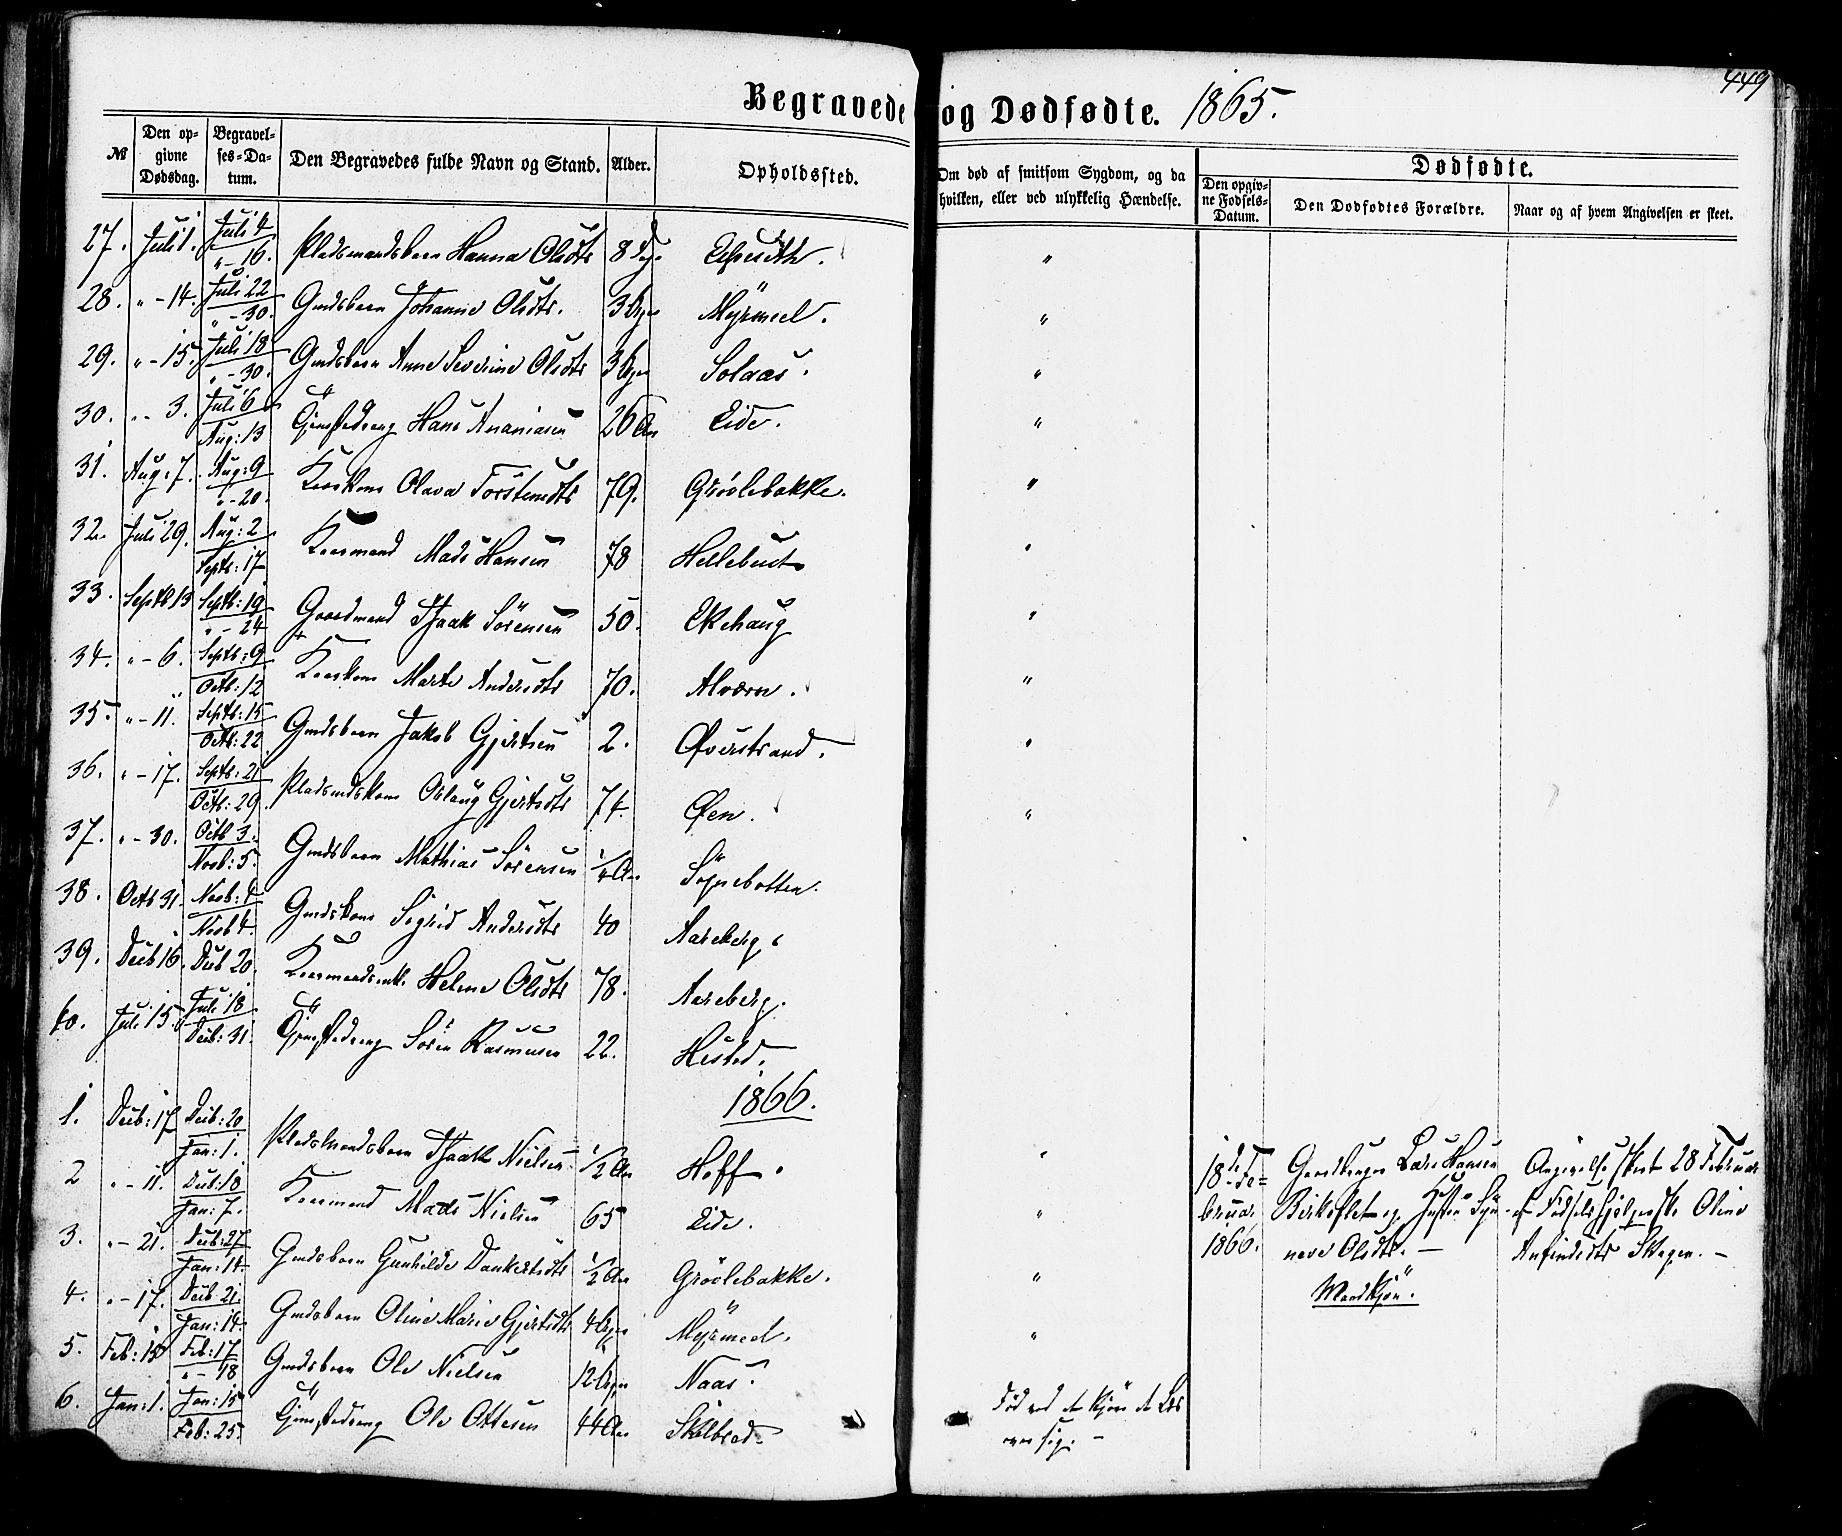 449
Begravede og Dødfødte. 1865.
№ Den opgivne Dødsdag. Begravelses-Datum. Den Begravedes fulde Navn og Stand. Alder. Opholdssted. Om død af smitsom Sygdom, og da hvilken, eller ved ulykkelig Hændelse. Dødfødte.
Den opgivne Fødsels-Datum. Den Dødfødtes Forældre. Naar og af hvem Angivelsen er skeet.
27. Juli 1. Juli 4 " - 16. Pladsmandsbarn Hanna Olsdtr 8 Dge "
28. " - 14. Juli 22 " - 30. Gmdsbarn Johanne Olsdtr. 3 Myrmel. "
29. " - 15. Juli 18 " - 30. Gmdsbarn Anne Severine Olsdtr 3 Solaas. "
30. " - 3. Juli 6 Aug: 13 Hans Ananiasen 26 Aar Eide. "
31. Aug: 7. Aug: 9 " - 20. Kaarkone Olava Torstensdtr 79. Grøvlebakke. "
32. Juli 29. Aug: 2 Septb: 17 Kaarmand Mads Hansen 78 Hellebust "
33. Septb 13 Septb: 19 " - 24 Gaardmand Isaak Sörensen 50. Ekehaug "
34. " - 6. Septb: 9 Octb: 12 Kaarkone Marte Andersdtr 70. Alværn. "
35. " - 11. Septb: 15 Octb: 22 Gmdsbarn Jakob Gjertsen 2. Øverstrand. "
36. " - 17. Septb: 21 Octb: 29. Pladsmdskone Oslaug Gjertsdtr 74. Øen. "
37. " - 30. Octb 3. Novb: 5. Gmdsbarn Mathias Sörensen 1/4 Aar Sögnebotten.
38. Octb 31. Novb: 4 Novb 4. Gmdskone Sigrid Andersdtr 40 Aareberg.
39. Decb 16. Decb 20. Helene Olsdtr 78. Aareberg.
40. Juli 15. Juli 18 Decb: 31. Sören Rasmusen 22. Hestad.
1866.
1. Decb: 17 Decb: 20 Jan: 1. Pladsmandsbarn Isaak Nielsen 1/2 Aar Hoff. "
2 " - 11. Decb: 18 Jan: 7. Kaarmand Mads Nielsen 65 Eide. "
3. " - 21. Decb: 27 Jan: 14. Gmdsbarn Gunhilde Dankertsdtr 1/2 Aar Grøvlebakke. "
4. " - 17. Decb: 21. Jan: 14. Gmdsbarn Oline Marie Gjertsdtr 4 Myrmel. "
5. Feb: 15 Feb: 17 " - 18 Gmdsbarn Ole Nielsen 12 Naas.
6. Jan: 1. Jan: 15 Feb: 25. Ole Ottesen 44 Aar Skilbred.
over sig. -
18de Fe=
bruar
1866.
Gaardbruger Lars Hansen
Birkeflet og Hustru Syn-
neve Olsdtr. -
Mandkjön.
Angivelse skeet 28 Februar
af Fødselshjelperske Oline
Anfindsdtr Skagen. -